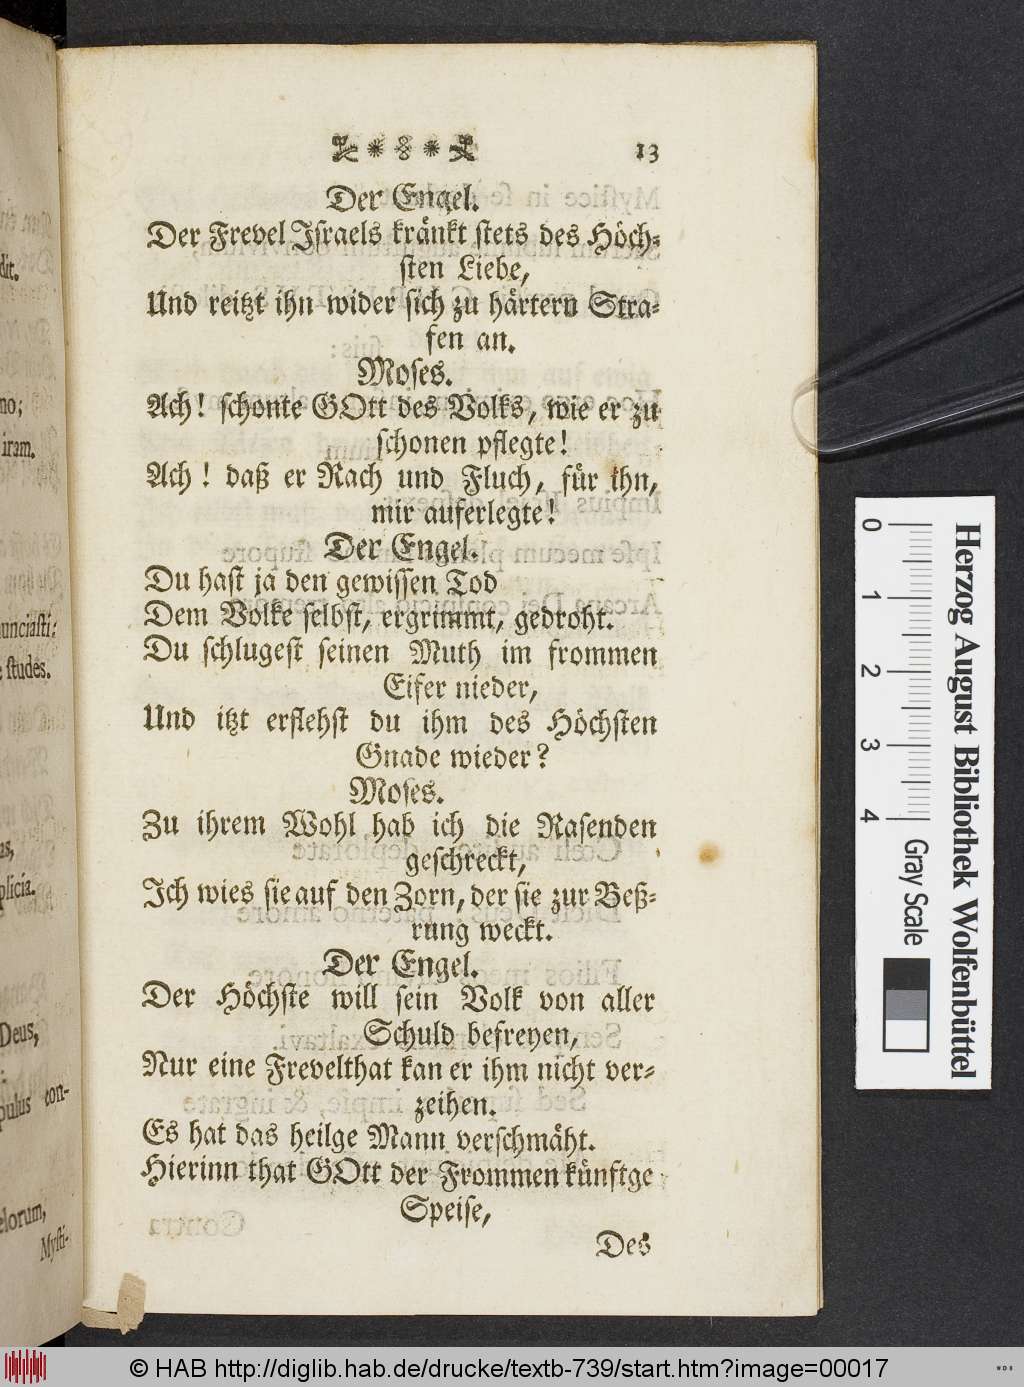 13
Der Engel.
Der Frevel Iſraels kränkt ſtets des Höch-
ſten Liebe,
Und reitzt ihn wider ſich zu härtern Stra-
fen an.
Moſes.
Ach! ſchonte GOtt des Volks, wie er zu
ſchonen pflegte!
Ach! daß er Rach und Fluch, für ihn,
mir auferlegte!
Der Engel.
Du haſt ja den gewiſſen Tod
Dem Volke ſelbſt, ergrimmt, gedroht.
Du ſchlugeſt ſeinen Muth im frommen
Eifer nieder,
Und itzt erflehſt du ihm des Höchſten
Gnade wieder?
Moſes.
Zu ihrem Wohl hab ich die Raſenden
geſchreckt,
Ich wies ſie auf den Zorn, der ſie zur Beß-
rung weckt.
Der Engel.
Der Höchſte will ſein Volk von aller
Schuld befreyen,
Nur eine Frevelthat kan er ihm nicht ver-
zeihen.
Es hat das heilge Mann verſchmäht.
Hierinn that GOtt der Frommen künftge
Speiſe,
Des
dit.
no;
iram.
unciaſti:
ſtudes.
us,
plicia.
Deus,
pulus con-
elorum,
Myſti-
0
1
2
3
4
Gray Scale
Herzog August Bibliothek Wolfenbüttel
© HAB http://diglib.hab.de/drucke/textb-739/start.htm?image=00017